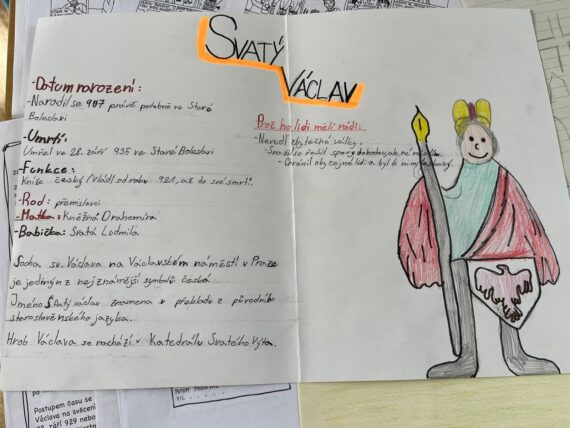 SVATÝ
VÁCLAV
-Datum narození:
-Narodil se 907 právě podobně ve Staré
Boleslavi
-Úmrtí:
Umřel ve 28. září 935 ve Staré Boleslavi
-Funkce:
Kníže český (vládl od roku 921, až do svá smrti.
-Rod: přemislovci
-Matka: Kněžná Drahomíra
-Babička: Svatá Ludmila
Socha sv. Václava na Václavském náměstí v Praze
je jedním z nej známější symbolů česká
Jméno Svatý václav znamena v překladu z původního
staroslověnského jazyka.
Hrob Václava se nachází v Katedrálu Svatého Víta.
Proč ho lidi měli rádi:
-Nevedl zbytečné války.
-Snažil se řešit spory dohodou ale né
-Ochránil obyčejné lidi a byl k nim laskavý.
Postupem času se
Václava na svěcení
28. září 929 nebo